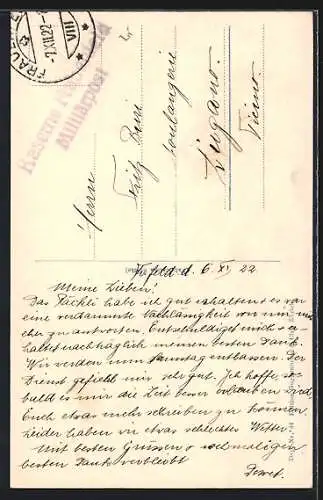 FRAUENFELD
-7.XII.22-
VIII
Kaserne Frauenfeld
Militärpost
Herrn
Fritz
boulangerie
Lugano.
Ticino.
d. 6. XI. 22
Meine Lieben!
Das Päckli habe ich gut erhalten es war
eine verdammte Nachlässigkeit von mir nicht
eher zu antworten. Entschuldiget mich & er
haltet nachträglich meinen besten Dank.
Wir werden zum Samstag entlassen. Der
Dienst gefiel mir sehr gut. Ich hoffe, so
bald es mir die Zeit besser erlauben wird,
Euch etwas mehr schreiben zu können.
Leider haben wir etwas schlechtes Wetter.
Mit besten Grüssen & nochmaligen
besten Dank verbleibt